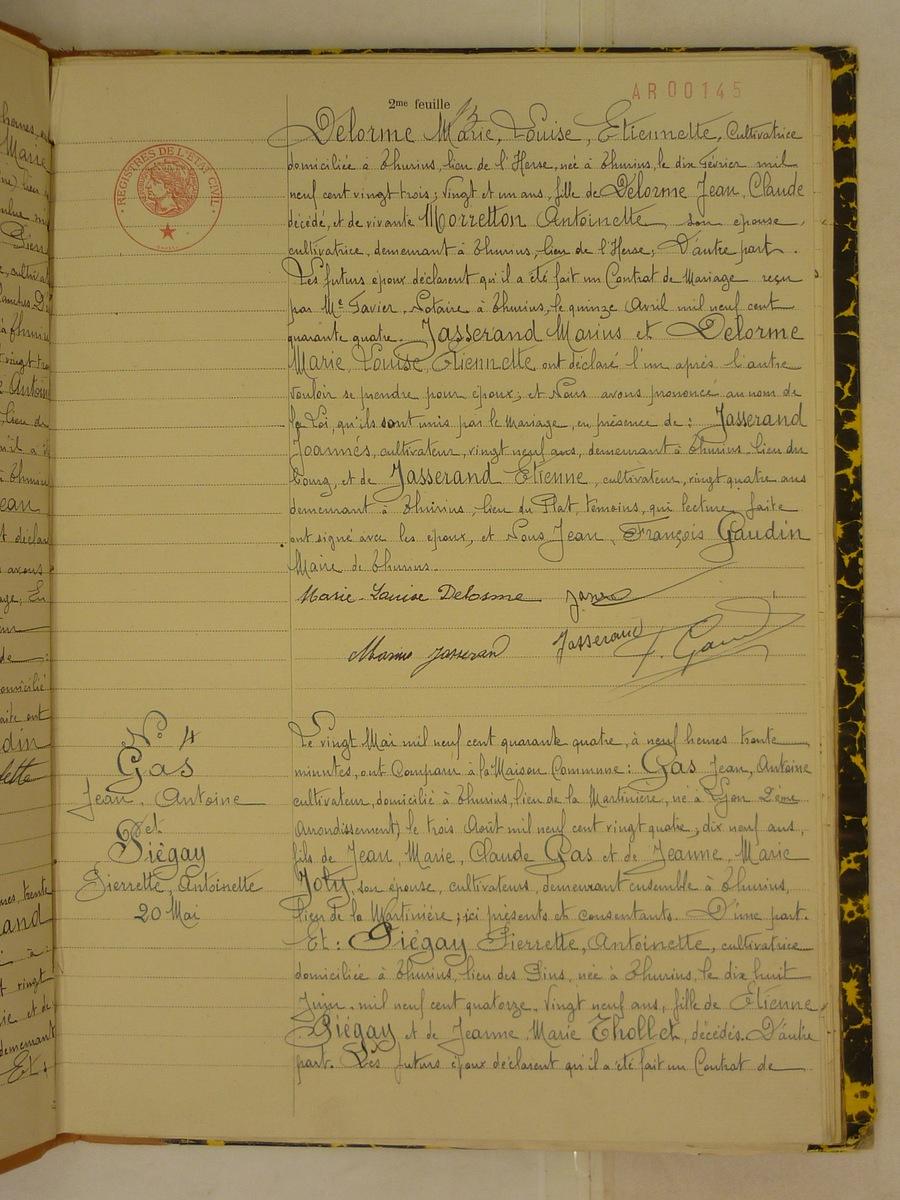 AR00145
2me feuille
REGISTRES DE L'ETAT CIVIL
Delorme Marie, Louise, Etiennette, Cultivatrice
domiciliée à Thurins, lieu de l'Herse, née à Thurins, le dix Février mil
neuf cent vingt trois; vingt et un ans, fille de Delorme Jean, Claude
décédé, et de vivante Morretton Antoinette, son épouse,
cultivatrice, demeurant à Thurins, lieu de l'Herse; D'autre part.
Les futurs époux déclarent qu'il a été fait un Contrat de Mariage reçu
par Me Favier, Notaire à Thurins, le quinze Avril mil neuf cent
quarante quatre. Jasserand Marius et Delorme
Marie, Louise, Etiennette ont déclaré l'un après l'autre
vouloir se prendre pour époux; et Nous avons prononcé au nom de
la Loi, qu'ils sont unis par le Mariage, en présence de: Jasserand
Joannès, cultivateur, vingt neuf ans, demeurant à Thurins lieu du
bourg, et de Jasserand Etienne, cultivateur, vingt quatre ans
demeurant à Thurins, lieu du Plat, témoins, qui lecture faite
ont signé avec les époux, et Nous Jean, François Gaudin
Maire de Thurins.
Marie-Louise Delorme
Marius Jasserand Jasserand
No 4
Gas
Jean, Antoine
et
Piégay
Pierrette, Antoinette
20 Mai
Le vingt Mai mil neuf cent quarante quatre, à neuf heures trente
minutes, ont Comparu à la Maison Commune: Gas Jean, Antoine
cultivateur, domicilié à Thurins, lieu de la Martinière, né à Lyon 2ème
Arrondissement) le trois Août mil neuf cent vingt quatre; dix neuf ans,
fils de Jean, Marie, Claude Gas et de Jeanne, Marie
Joly, son épouse, cultivateurs, demeurant ensemble à Thurins,
lieu de la Martinière; ici présents et consentants. D'une part.
Et: Piégay Pierrette, Antoinette, cultivatrice
domiciliée à Thurins, lieu des Pins, née à Thurins, le dix huit
Juin mil neuf cent quatorze, vingt neuf ans, fille de Etienne
Piégay et de Jeanne Marie Thollet, décédés. D'autre
part. Les futurs époux déclarent qu'il a été fait un Contrat de